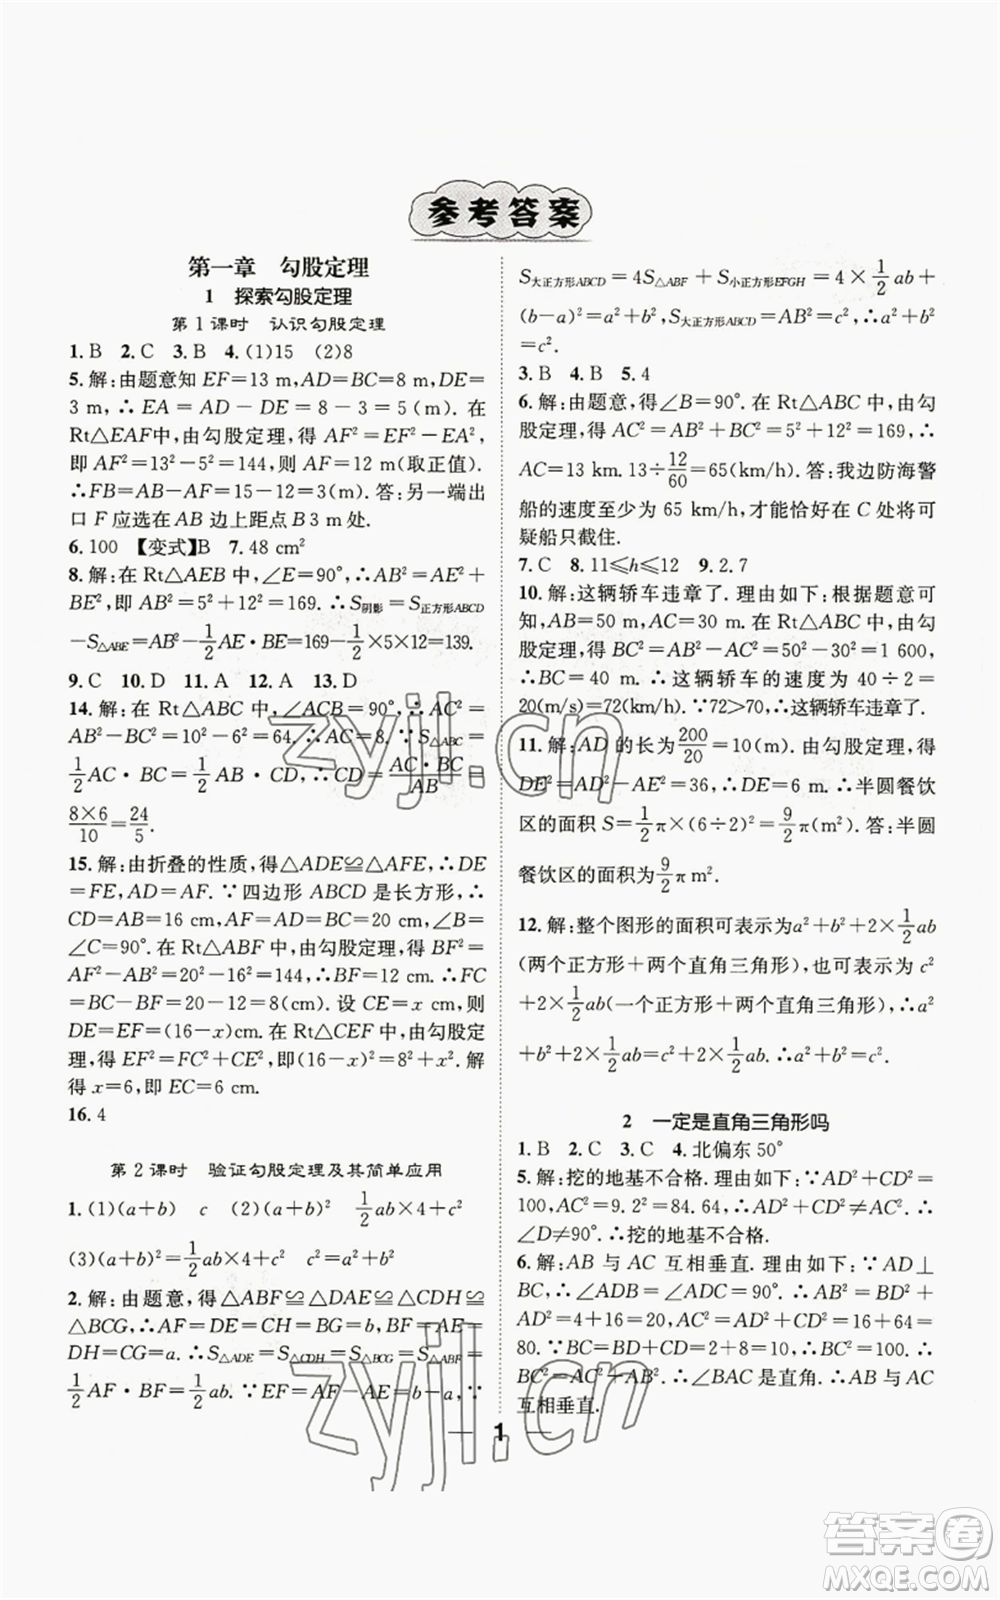 参考答案
第一章　勾股定理
1　探索勾股定理
第1课时　认识勾股定理
1. B　2. C　3. B　4. (1)15　(2)8
5. 解:由题意知 EF=13 m,AD=BC=8 m,DE=
3 m,∴EA=AD-DE=8-3=5(m). 在
Rt△EAF中,由勾股定理,得 AF²=EF²-EA²,
即 AF²=13²-5²=144,则 AF=12 m(取正值).
∴FB=AB-AF=15-12=3(m). 答:另一端出
口 F 应选在 AB 边上距点 B 3 m 处.
6. 100　【变式】B　7. 48 cm²
8. 解:在 Rt△AEB 中,∠E=90°,∴AB²=AE²+
BE²,即 AB²=5²+12²=169. ∴S阴影=S正方形ABCD
-S△ABE=AB²-1/2AE·BE=169-1/2×5×12=139.
9. C　10. D　11. A　12. A　13. D
14. 解:在 Rt△ABC 中,∠ACB=90°,∴AC²=
AB²-BC²=10²-6²=64. ∴AC=8. ∵S△ABC=
1/2AC·BC=1/2AB·CD,∴CD=AC·BC/AB=
8×6/10=24/5.
15. 解:由折叠的性质,得△ADE≌△AFE,∴DE
=FE,AD=AF. ∵四边形 ABCD 是长方形,∴
CD=AB=16 cm,AF=AD=BC=20 cm,∠B=
∠C=90°. 在 Rt△ABF 中,由勾股定理,得 BF²=
AF²-AB²=20²-16²=144,∴BF=12 cm. ∴FC
=BC-BF=20-12=8(cm). 设 CE=x cm,则
DE=EF=(16-x)cm. 在 Rt△CEF 中,由勾股定
理,得 EF²=FC²+CE²,即(16-x)²=8²+x². 解
得 x=6,即 EC=6 cm.
16. 4
第2课时　验证勾股定理及其简单应用
1. (1)(a+b)　c　(2)(a+b)²　1/2ab×4+c²
(3)(a+b)²=1/2ab×4+c²　c²=a²+b²
2. 解:由题意,得△ABF≌△DAE≌△CDH≌
△BCG,∴AF=DE=CH=BG=b,BF=AE=
DH=CG=a. ∴S△ADE=S△CDH=S△BCG=S△ABF=
1/2AF·BF=1/2ab. ∵EF=AF-AE=b-a,∵
S大正方形ABCD=4S△ABF+S小正方形EFGH=4×1/2ab+
(b-a)²=a²+b²,S大正方形ABCD=AB²=c²,∴a²+b²
=c².
3. B　4. B　5. 4
6. 解:由题意,得∠B=90°. 在 Rt△ABC 中,由勾
股定理,得 AC²=AB²+BC²=5²+12²=169,∴
AC=13 km. 13÷12/60=65(km/h). 答:我边防海警
船的速度至少为 65 km/h,才能恰好在 C 处将可
疑船只截住.
7. C　8. 11≤h≤12　9. 2.7
10. 解:这辆轿车违章了. 理由如下:根据题意可
知,AB=50 m,AC=30 m. 在 Rt△ABC 中,由勾
股定理,得 BC²=AB²-AC²=50²-30²=1 600,
∴BC=40 m. ∴这辆轿车的速度为 40÷2=
20(m/s)=72(km/h). ∵72>70,∴这辆轿车违章了.
11. 解:AD 的长为200/20=10(m). 由勾股定理,得
DE²=AD²-AE²=36,∴DE=6 m. ∴半圆餐饮
区的面积 S=1/2π×(6÷2)²=9/2π(m²). 答:半圆
餐饮区的面积为9/2π m².
12. 解:整个图形的面积可表示为a²+b²+2×1/2ab
(两个正方形+两个直角三角形),也可表示为 c²
+2×1/2ab(一个正方形+两个直角三角形),∴a²
+b²+2×1/2ab=c²+2×1/2ab. ∴a²+b²=c².
2　一定是直角三角形吗
1. B　2. C　3. C　4. 北偏东 50°
5. 解:挖的地基不合格. 理由如下:∵AD²+CD²=
100,AC²=9.2²=84.64,∴AD²+CD²≠AC². ∴
∠D≠90°. ∴挖的地基不合格.
6. 解:AB 与 AC 互相垂直. 理由如下:∵AD⊥
BC,∴∠ADB=∠ADC=90°. ∴AB²=BD²+
AD²=4+16=20,AC²=AD²+CD²=16+64=
80. ∵BC=BD+CD=2+8=10,∴BC²=100. ∴
BC²=AC²+AB². ∴∠BAC 是直角. ∴AB 与 AC
互相垂直.
1
zyjl.cn
zyjl.cn
答案卷
MXQE.COM